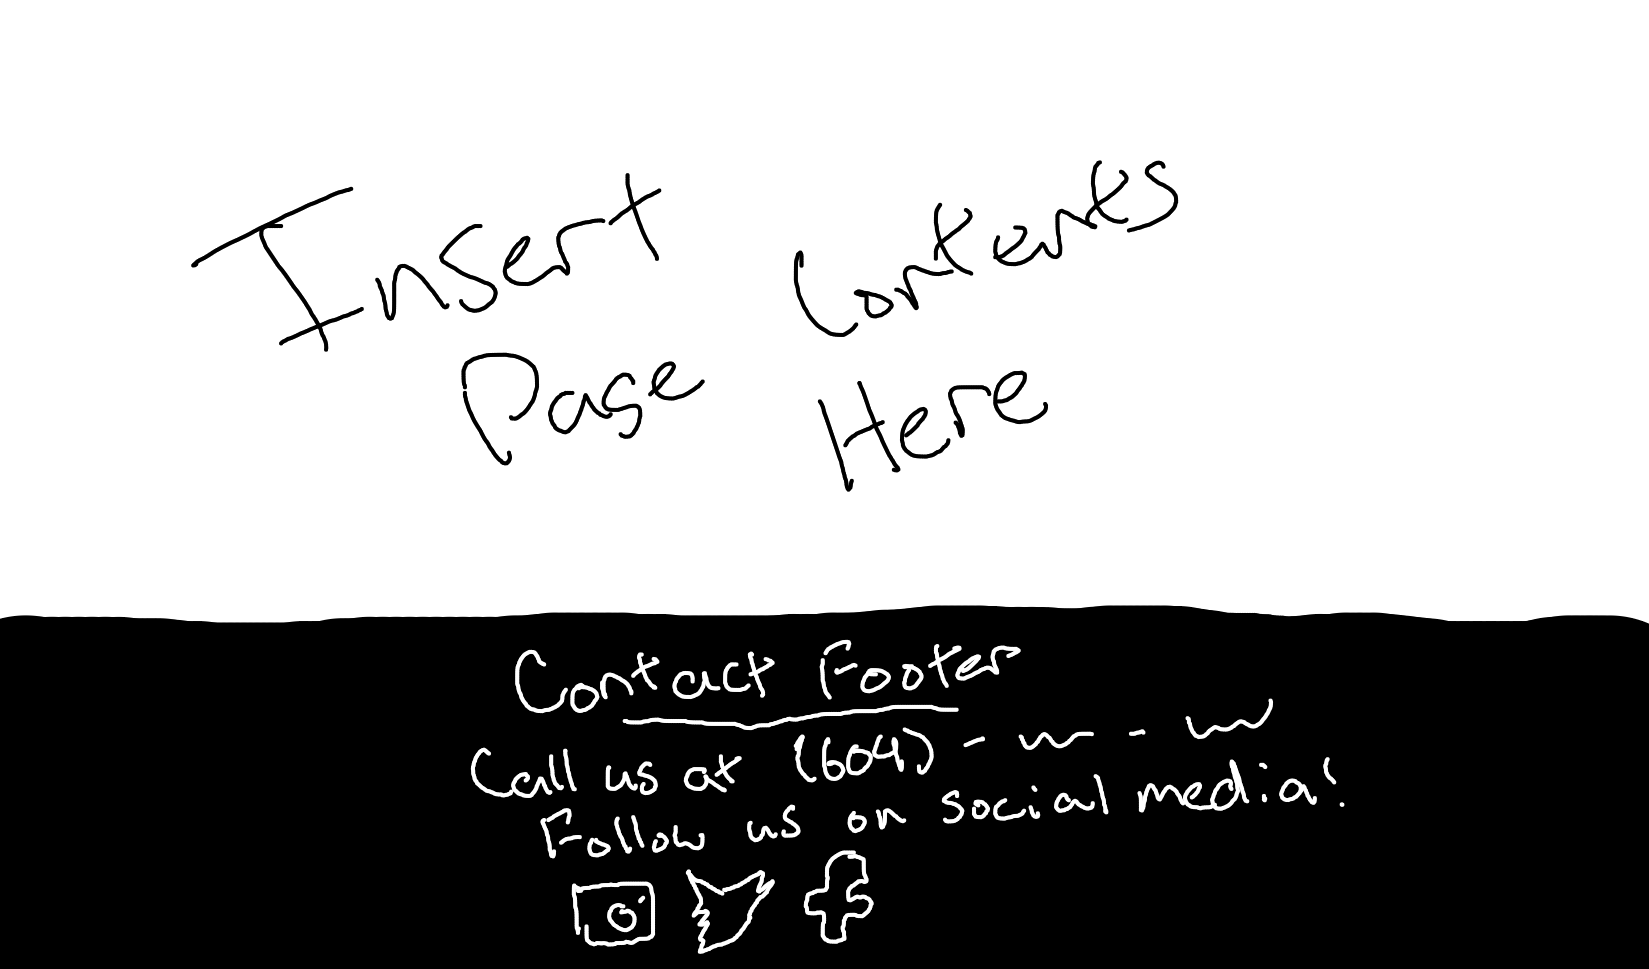 Insert Contents
Page Here
Contact Footer
Call us at (604) - -
Follow us on social media!